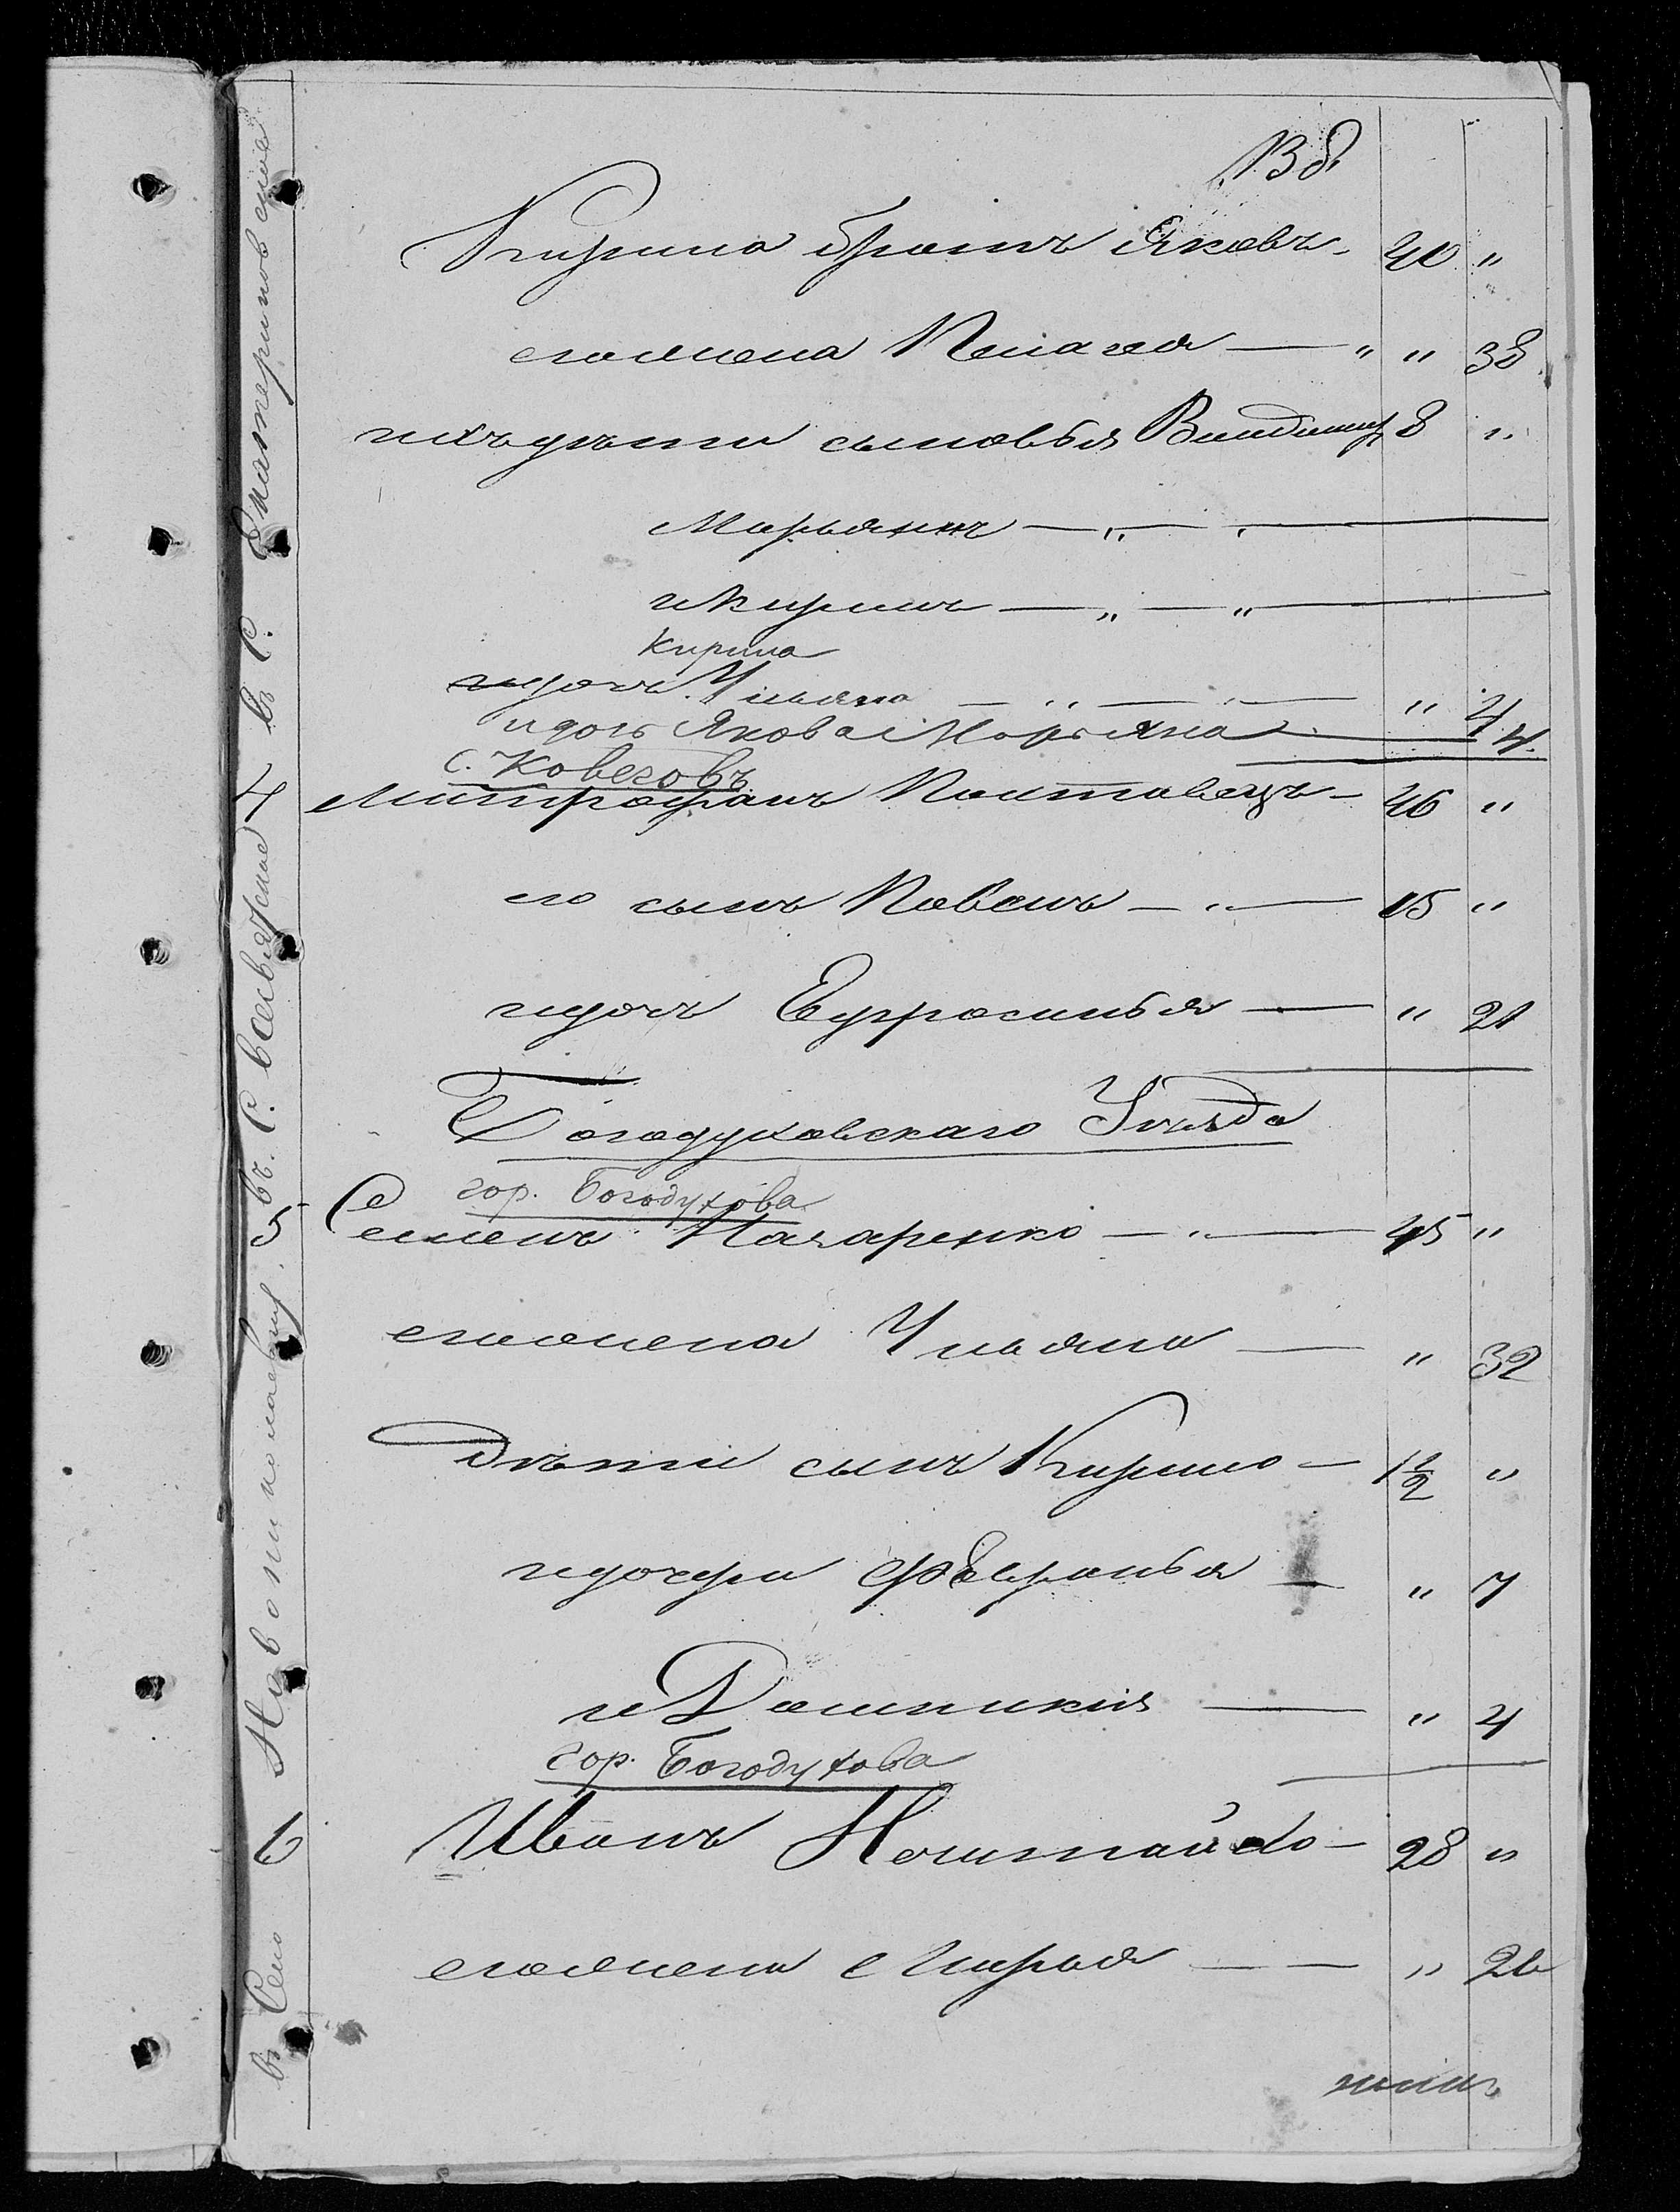 Кирила братъ Яковъ 40 "
егожена Пелагея — " " 38
ихъдѣти сыновья Владимиръ 8 "
Марьянъ — " —
иКирилъ — " — "
Кирила
идочь Ульяна — " — " 4
идочь Якова Марьяна 4
с. Ковеговъ
4 Митрофанъ Полтавецъ — 46 "
его сынъ Павелъ — " — 15 "
идочь Евфросинья — " 21
Богодуховскаго Уѣзда
гор. Богодухова
5 Семенъ Назаренко — " — 45 "
егожена Ульяна — " 32
Дѣти сынъ Кирило — 1½ "
идочери Февронья — " 7
иДомникія — " 4
гор. Богодухова
6 Иванъ Нечитайло — 28 "
егожена Марья — — " 26
въ С. Екатериновское
въ С. Всесвятское
въ Село Новониколаевку